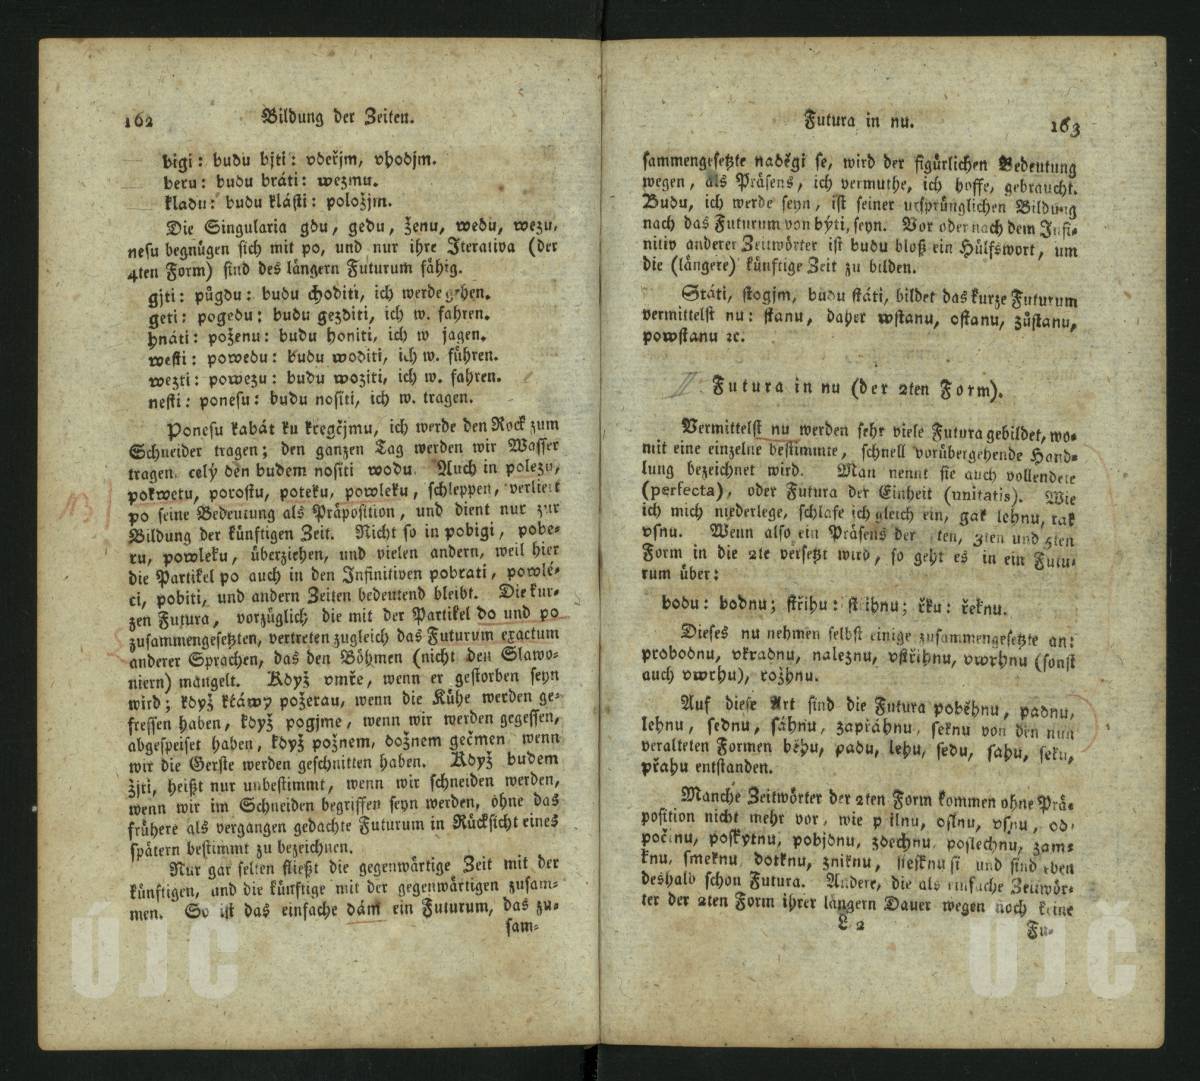 162 Bildung der Zeiten.
bigi: budu bjti: vdeřjm, vhodjm.
beru: budu bráti: wezmu.
kladu: budu klásti: položjm.
Die Singularia gdu, gedu, ženu, wedu, wezu,
nesu begnügen sich mit po, und nur ihre Iterativa (der
4ten Form) sind des längern Futurum fähig.
gjti: půgdu: budu choditi, ich werde gehen.
geti: pogedu: budu gezditi, ich w. fahren.
hnáti: poženu: budu honiti, ich w jagen.
westi: powedu: budu woditi, ich w. führen.
wezti: powezu: budu woziti, ich w. fahren.
nesti: ponesu: budu nositi, ich w. tragen.
Ponesu kabát ku kregčjmu, ich werde den Rock zum
Schneider tragen; den ganzen Tag werden wir Wasser
tragen, celý den budem nositi wodu. Auch in polezu,
pokwetu, porostu, poteku, powleku, schleppen, verliert
po seine Bedeutung als Präposition, und dient nur zur
Bildung der künftigen Zeit. Nicht so in pobigi, pobe-
ru, powleku, überziehen, und vielen andern, weil hier
die Partikel po auch in den Infinitiven pobrati, powlé-
ci, pobiti, und andern Zeiten bedeutend bleibt. Die kur-
zen Futura, vorzüglich die mit der Partikel do und po
zusammengesetzten, vertreten zugleich das Futurum exactum
anderer Sprachen, das den Böhmen (nicht den Slawo-
niern) mangelt. Když vmře, wenn er gestorben seyn
wird; když kráwy požerau, wenn die Kühe werden ge-
fressen haben, když pogjme, wenn wir werden gegessen,
abgespeiset haben, když požnem, dožnem gečmen wenn
wir die Gerste werden geschnitten haben. Když budem
žjti, heißt nur unbestimmt, wenn wir schneiden werden,
wenn wir im Schneiden begriffen seyn werden, ohne das
frühere als vergangen gedachte Futurum in Rücksicht eines
spätern bestimmt zu bezeichnen.
Nur gar selten fließt die gegenwärtige Zeit mit der
künftigen, und die künftige mit der gegenwärtigen zusam-
men. So ist das einfache dám ein Futurum, das zu-
sam-
13)
Futura in nu. 163
sammengesetzte naděgi se, wird der figürlichen Bedeutung
wegen, als Präsens, ich vermuthe, ich hoffe, gebraucht.
Budu, ich werde seyn, ist seiner ursprünglichen Bildung
nach das Futurum von býti, seyn. Vor oder nach dem Infi-
nitiv anderer Zeitwörter ist budu bloß ein Hülfswort, um
die (längere) künftige Zeit zu bilden.
Státi, stogjm, budu státi, bildet das kurze Futurum
vermittelst nu: stanu, daher wstanu, ostanu, zůstanu,
powstanu ꝛc.
II. Futura in nu (der 2ten Form).
Vermittelst nu werden sehr viele Futura gebildet, wo-
mit eine einzelne bestimmte, schnell vorübergehende Hand-
lung bezeichnet wird. Man nennt sie auch vollendete
(perfecta), oder Futura der Einheit (unitatis). Wie
ich mich niederlege, schlafe ich gleich ein, gak lehnu, tak
vsnu. Wenn also ein Präsens der ten, 3ten und 5ten
Form in die 2te versetzt wird, so geht es in ein Futu-
rum über:
bodu: bodnu; střihu: stihnu; řku: řeknu.
Dieses nu nehmen selbst einige zusammengesetzte an:
probodnu, vkradnu, naleznu, vstřihnu, vwrhnu (sonst
auch vwrhu), rožhnu.
Auf diese Art sind die Futura poběhnu, padnu,
lehnu, sednu, sáhnu, zapřáhnu, seknu von den nun
veralteten Formen běhu, padu, lehu, sedu, sahu, seku,
přahu entstanden.
Manche Zeitwörter der 2ten Form kommen ohne Prä-
position nicht mehr vor, wie p ilnu, oslnu, vsnu, od-
počinu, poskytnu, pobjdnu, zdechnu, poslechnu, zam-
knu, smeknu, dotknu, zniknu, stesknu si und sind eben
deshalb schon Futura. Andere, die als einfache Zeitwör-
ter der 2ten Form ihrer längern Dauer wegen noch keine
L 2 Fu-
ÚJČ
ÚJČ